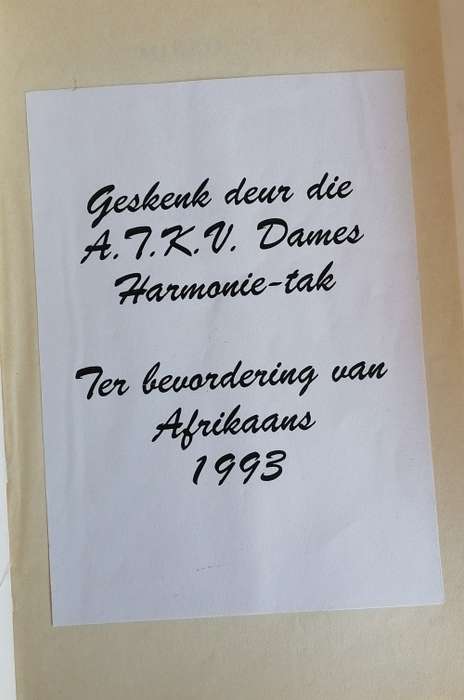 Geskenk deur die
A.T.K.V. Dames
Harmonie-tak
Ter bevordering van
Afrikaans
1993